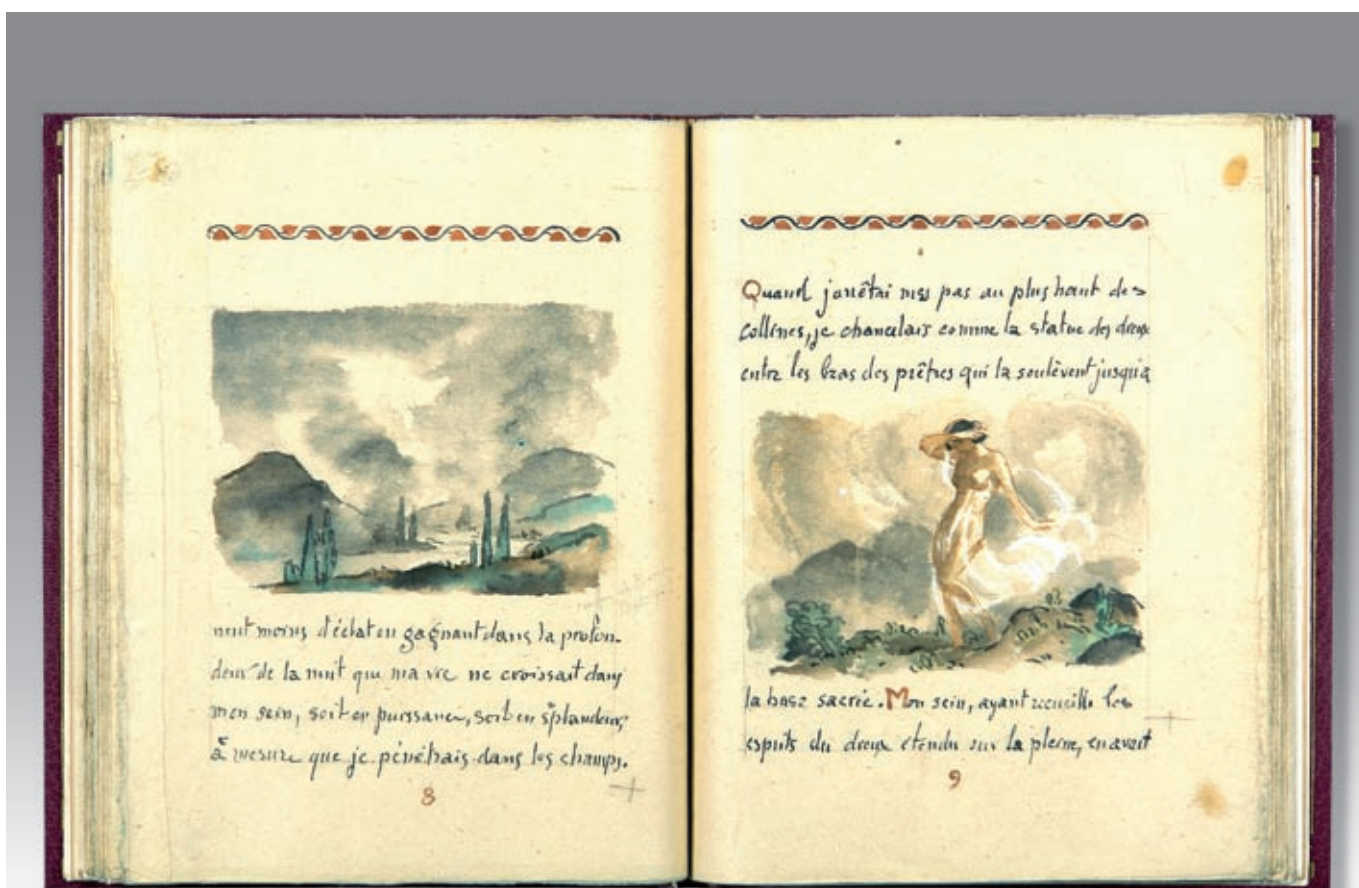 nent moins d'éclat en gagnant dans la profon-
deur de la nuit que ma vie ne croissait dans
mon sein, soit en puissance, soit en splendeur,
à mesure que je pénétrais dans les champs.
8
Quand j'arrêtai mes pas au plus haut des
collines, je chancelais comme la statue des dieux
entre les bras des prêtres qui la soulèvent jusqu'à
la base sacrée. Mon sein, ayant recueilli les
esprits du dieux étendu sur la pleine, en avait
9